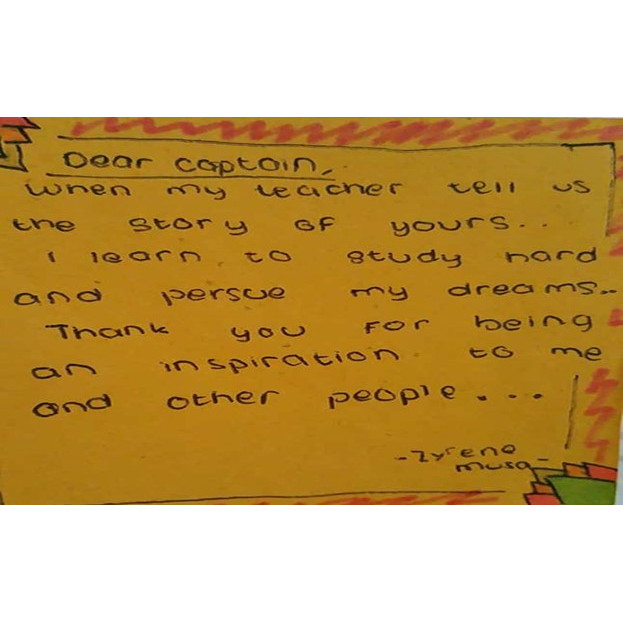 Dear captain,
when my teacher tell us
the story of yours..
I learn to study hard
and persue my dreams..
Thank you for being
an inspiration to me
and other people....
-Zyrene
musa-